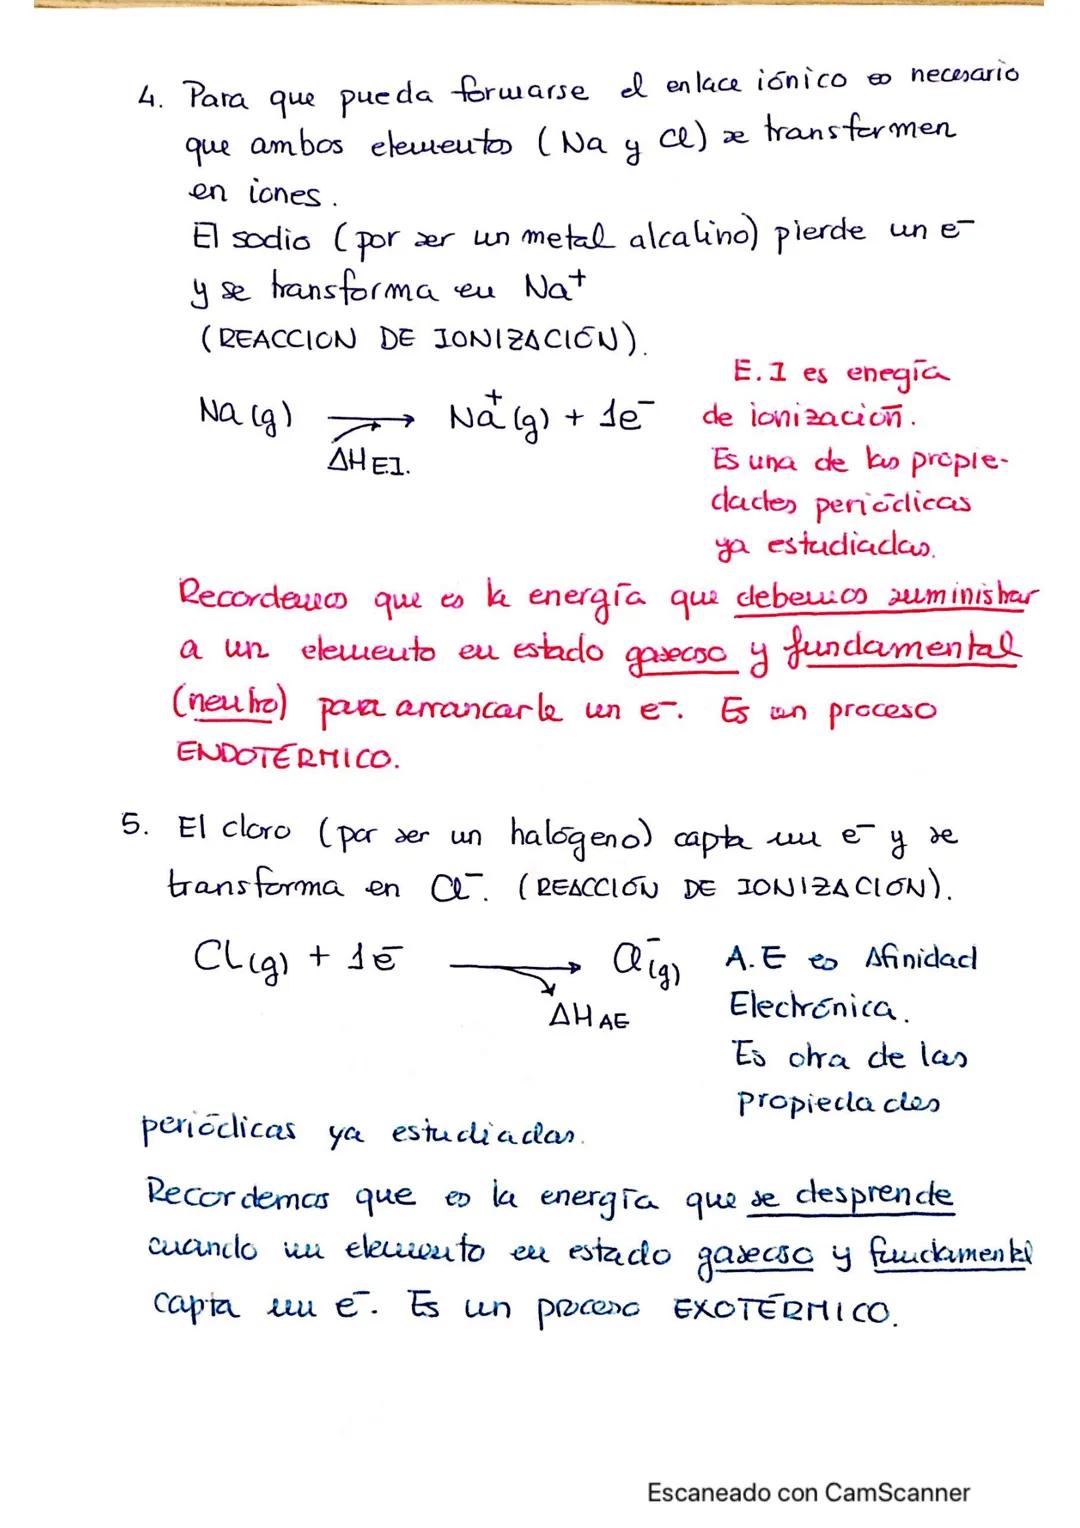 4. Para que pueda formarse el enlace iónico es necesario
que ambos elementos (Na y Cl) se transformen
en iones.
El sodio (por ser un metal alcalino) pierde un e⁻
y se transforma en Na⁺
(REACCION DE IONIZACIÓN).
Na (g) → Na⁺(g) + 1e⁻
ΔH E.I.
E.I es enegía
de ionización.
Es una de las propie-
dades periódicas
ya estudiadas.
Recordemos que es la energía que debemos suministrar
a un elemento en estado gaseoso y fundamental
(neutro) para arrancarle un e⁻. Es un proceso
ENDOTÉRMICO.
5. El cloro (por ser un halógeno) capta un e⁻ y se
transforma en Cl⁻. (REACCIÓN DE IONIZACIÓN).
Cl(g) + 1e⁻ → Cl⁻(g)
ΔH AE
A.E es Afinidad
Electrónica.
Es otra de las
propiedades
periódicas ya estudiadas.
Recordemos que es la energía que se desprende
cuando un elemento en estado gaseoso y fundamental
capta un e⁻. Es un proceso EXOTÉRMICO.
Escaneado con CamScanner